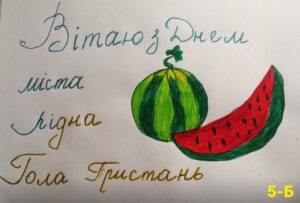 Вітаю з Днем
міста
рідна
Гола Пристань
5-Б